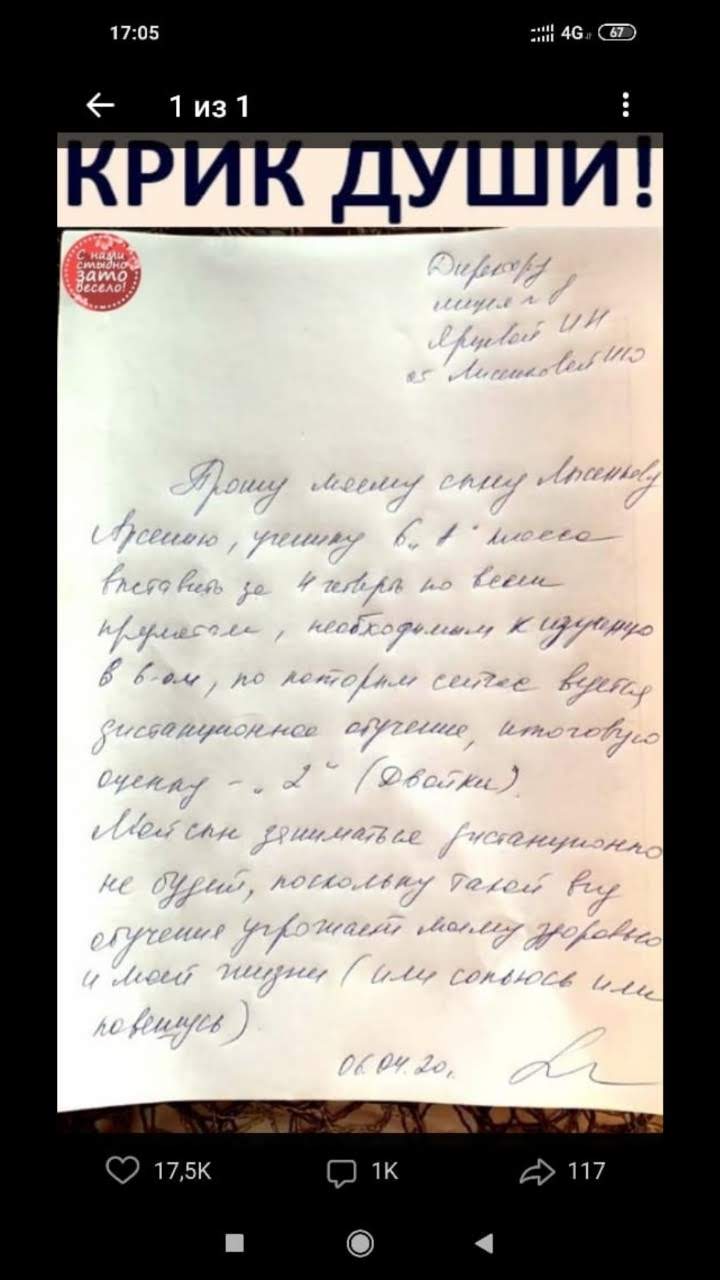 17:05
4G 67
1 из 1
КРИК ДУШИ!
С нами
стыдно
зато
весело!
Директору
лицея
Ярцевой ИН
от Лысенковой
Прошу моему сыну Лысенкову
Арсению, ученику 6 "А" класса
выставить за 4 четверть по всем
предметам, необходимым к изучению
в 6-ом, по которым сейчас ведется
дистанционное обучение, итоговую
оценку - "2" (Двойки).
Мой сын заниматься дистанционно
не будет, поскольку такой вид
обучения угрожает моему здоровью
и моей жизни (или сопьюсь или
повешусь)
06.04.20.
17,5K
1K
117